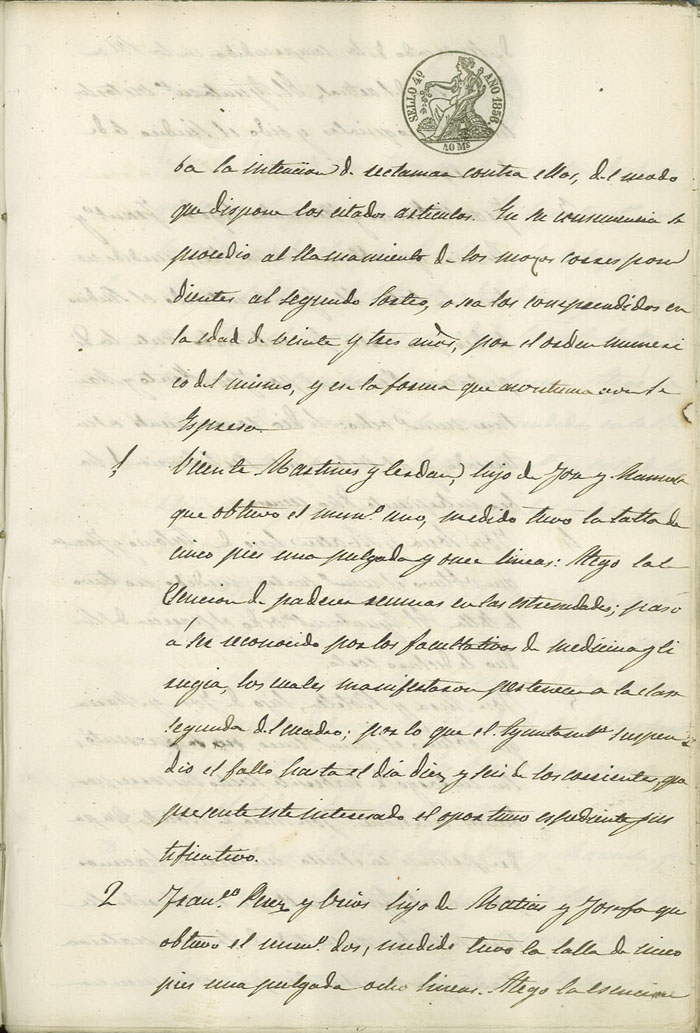 SELLO 4º AÑO 1858
40 Ms
ba la intencion de reclamar contra ellos, del modo
que dispone los citados articulos. En su consecuencia se
procedio al llamamiento de los mozos correspon
dientes al segundo Sorteo, o sea los comprendidos en
la edad de veinte y tres años, por el orden numeri
co del mismo, y en la forma que a continuacion se
Espresa.
1 Vicente Martines y hijo de Jose y Manuela
que obtuvo el numº uno, medido tuvo la talla de
cinco pies una pulgada y once lineas: Alego la
Esencion de padecer en las estremidades; paso
á ser reconocido por los facultativos de medicina y Ci
rugia, los cuales manifestaron pertenecer a la clase
segunda del cuadro; por lo que el Ayuntamto suspen
dio el fallo hasta el dia diez y seis de los corrientes, que
presente este interesado el oportuno espediente jus
tificativo.
2 Franco Perez y hijo de Matias y Josefa que
obtuvo el numº dos, medido tuvo la talla de cinco
pies una pulgada ocho lineas. Alego la esencion